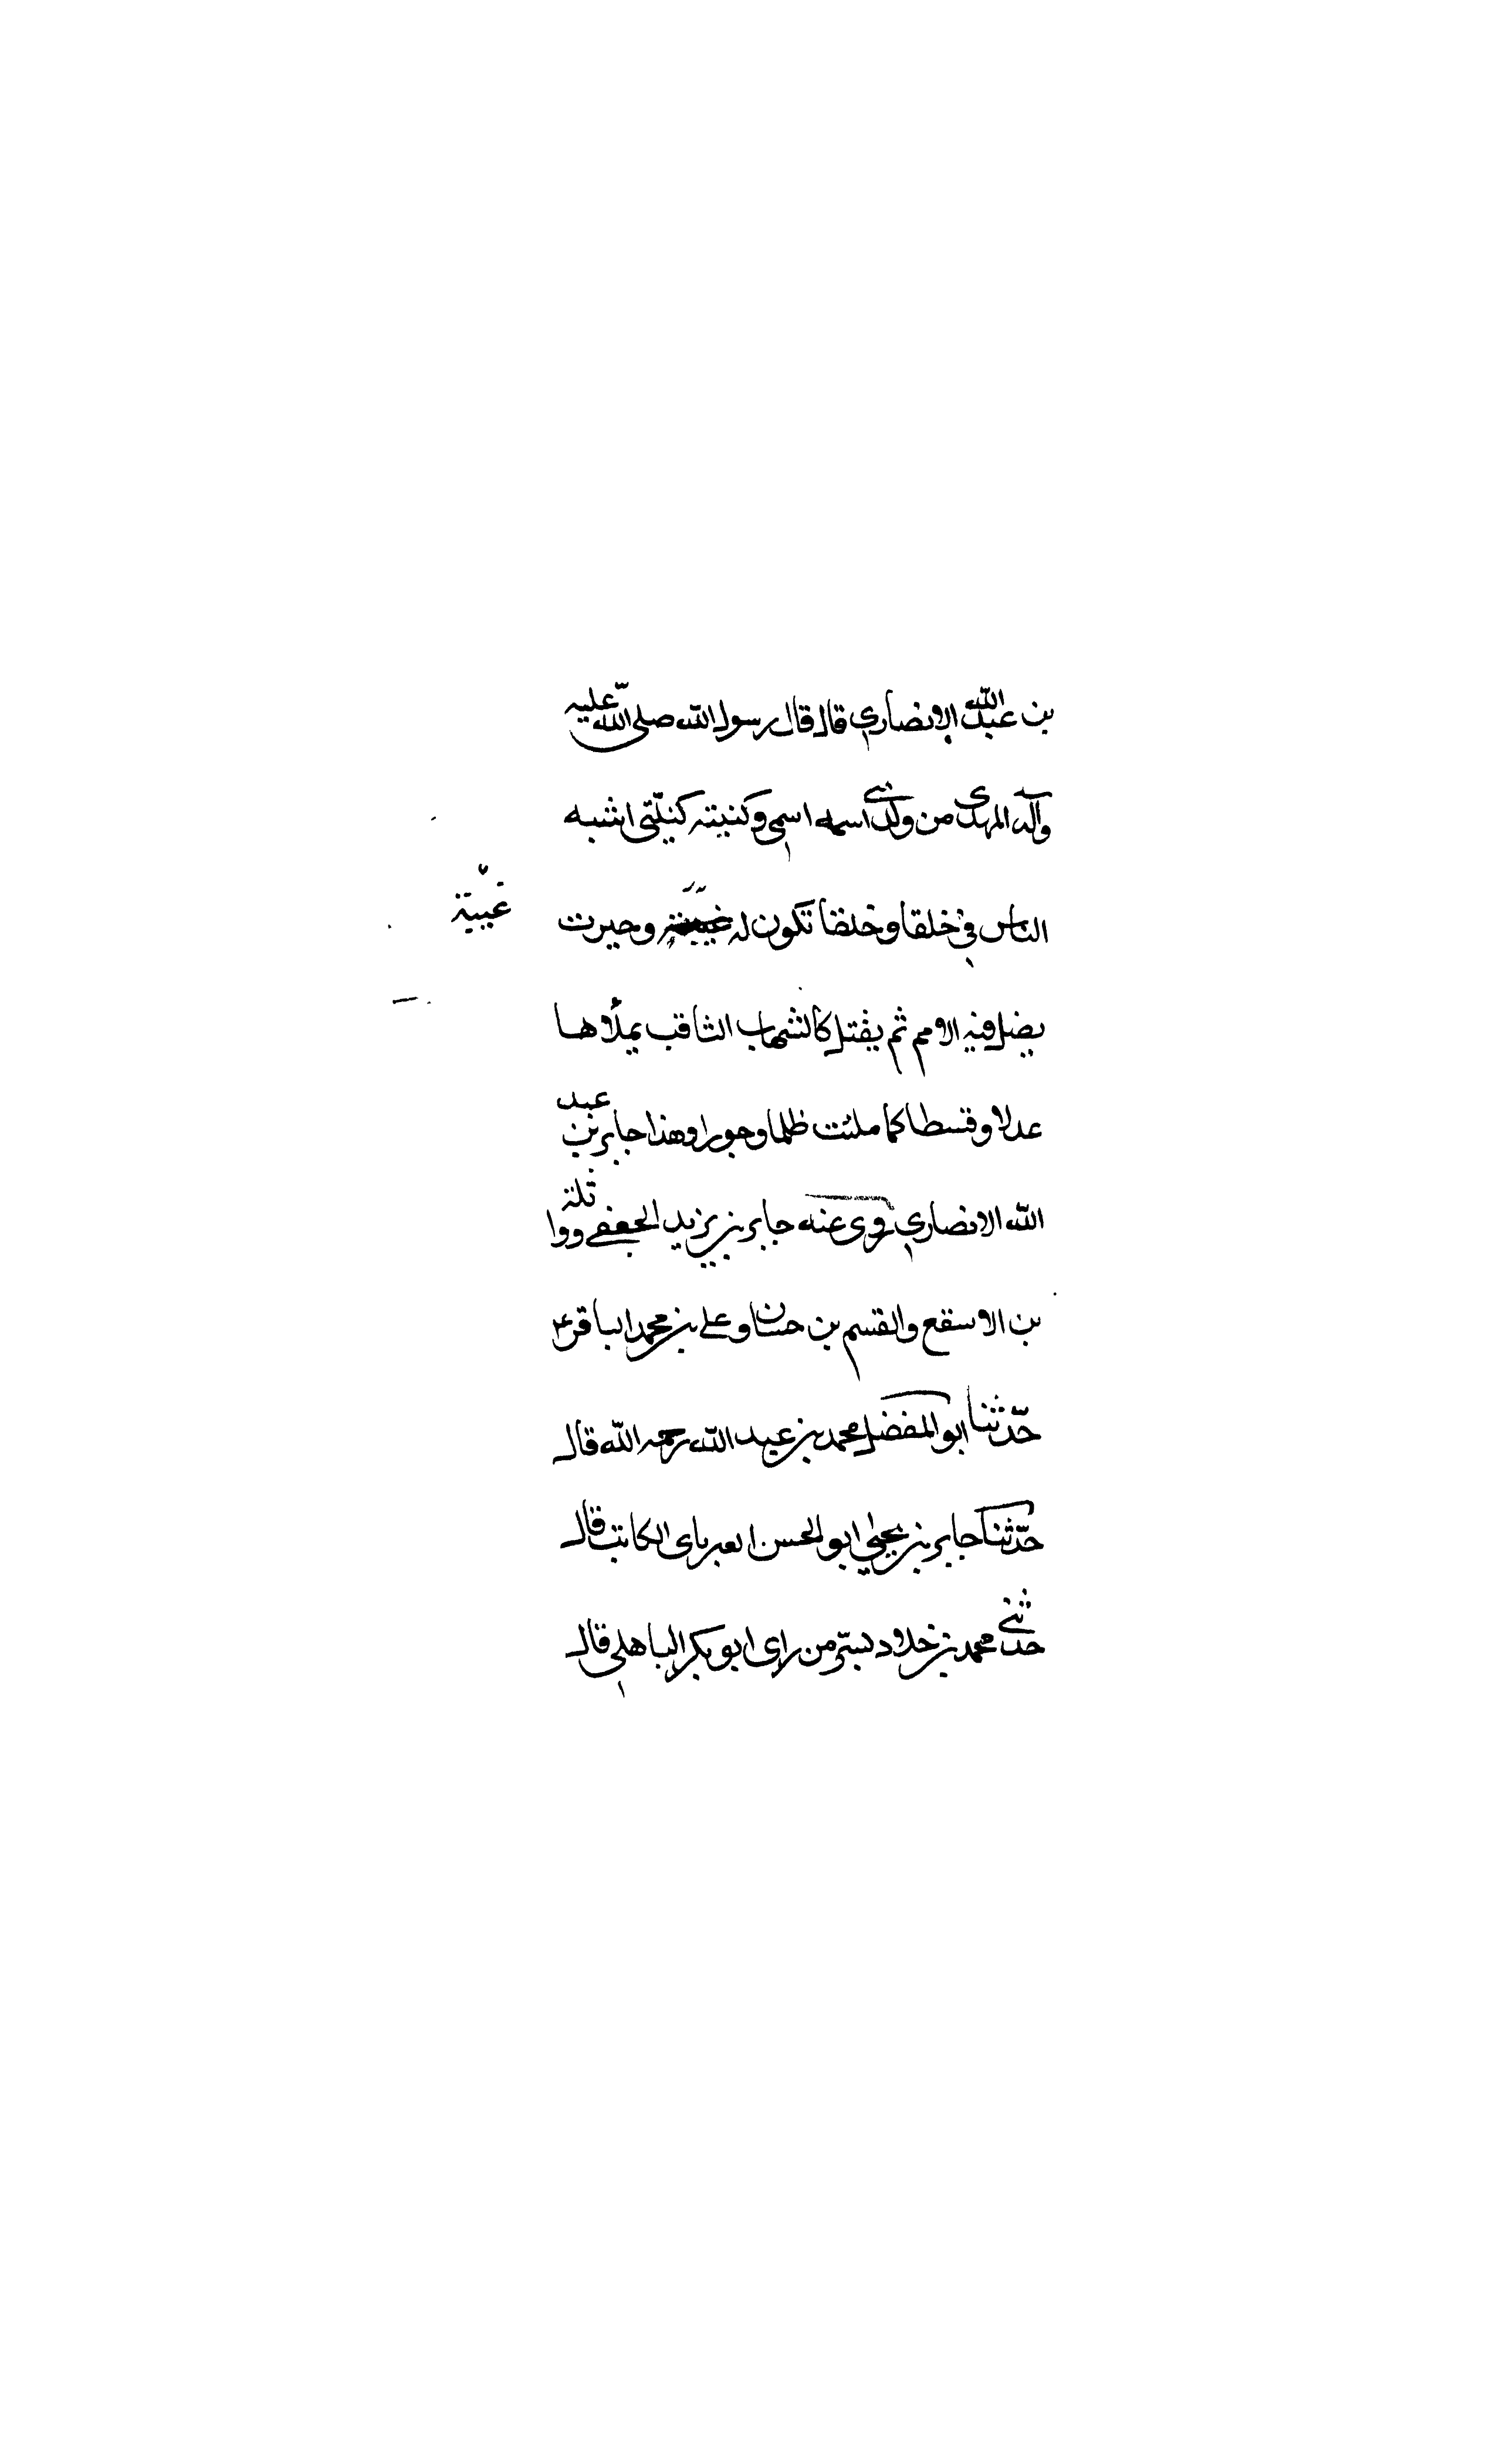 بن عبد الله الانصاري قال قال رسول الله صلى الله عليه
وآله المهدى من ولدى اسمه اسمى وكنيته كنيتى اشبه
الناس بى خلقا وخلقا تكون له غيبة وحيرت
غيبة
يضل فيه الامم ثم يقتل كالشهاب الثاقب يملأها
عدلا وقسطا كما ملئت ظلما وجورا وهذا جابر بن عبد
الله الانصاري روى عنه جابر بن يزيد الجعفى وواثلة
بن الاسقع والقسم بن حسان وعلى بن محمد الباقر ع
حدّثنا ابو المفضل محمد بن عبد الله رحمه الله قال
حدّثنا جابر بن يحيى ابو الحسن الكاتب قال
حدثنى محمد بن خلاد بسرّ من راى ابو بكر الباهلى قال